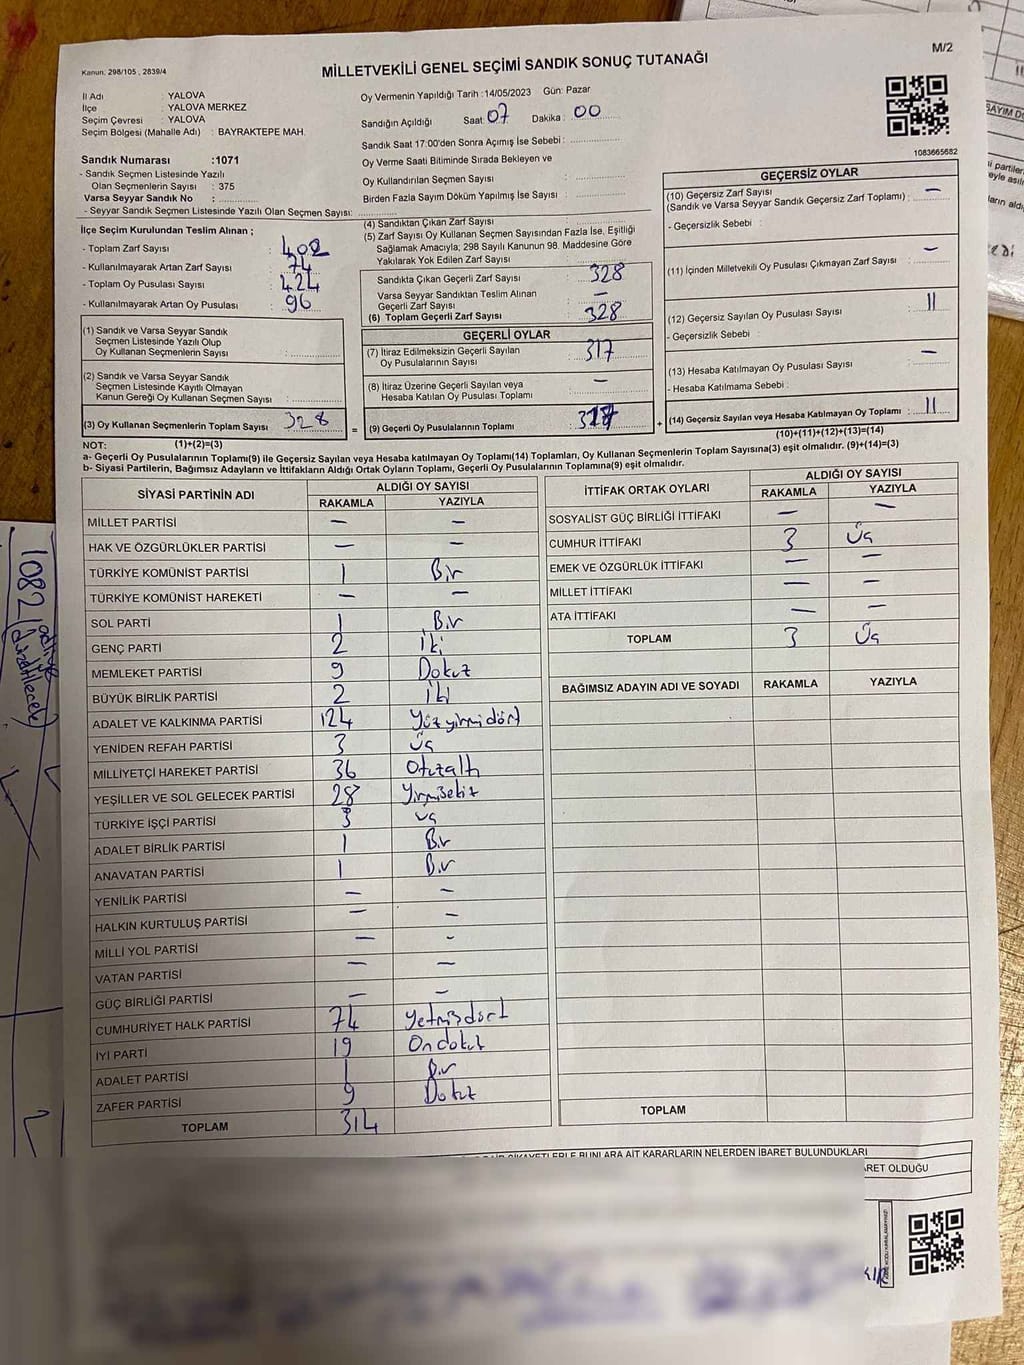 M/2
Kanun: 298/105 , 2839/4
MİLLETVEKİLİ GENEL SEÇİMİ SANDIK SONUÇ TUTANAĞI
İl Adı : YALOVA
İlçe : YALOVA MERKEZ
Seçim Çevresi : YALOVA
Seçim Bölgesi (Mahalle Adı) : BAYRAKTEPE MAH.
Sandık Numarası :1071
- Sandık Seçmen Listesinde Yazılı
Olan Seçmenlerin Sayısı : 375
Varsa Seyyar Sandık No :
- Seyyar Sandık Seçmen Listesinde Yazılı Olan Seçmen Sayısı:
İlçe Seçim Kurulundan Teslim Alınan ;
- Toplam Zarf Sayısı : 402
- Kullanılmayarak Artan Zarf Sayısı : 74
- Toplam Oy Pusulası Sayısı : 424
- Kullanılmayarak Artan Oy Pusulası : 96
(1) Sandık ve Varsa Seyyar Sandık
Seçmen Listesinde Yazılı Olup
Oy Kullanan Seçmenlerin Sayısı :
(2) Sandık ve Varsa Seyyar Sandık
Seçmen Listesinde Kayıtlı Olmayan
Kanun Gereği Oy Kullanan Seçmen Sayısı :
(3) Oy Kullanan Seçmenlerin Toplam Sayısı : 328
Oy Vermenin Yapıldığı Tarih :14/05/2023 Gün: Pazar
Sandığın Açıldığı Saat: 07 Dakika : 00
Sandık Saat 17:00'den Sonra Açımış İse Sebebi :
Oy Verme Saati Bitiminde Sırada Bekleyen ve
Oy Kullandırılan Seçmen Sayısı :
Birden Fazla Sayım Döküm Yapılmış İse Sayısı :
(4) Sandıktan Çıkan Zarf Sayısı :
(5) Zarf Sayısı Oy Kullanan Seçmen Sayısından Fazla İse, Eşitliği
Sağlamak Amacıyla; 298 Sayılı Kanunun 98. Maddesine Göre
Yakılarak Yok Edilen Zarf Sayısı :
Sandıkta Çıkan Geçerli Zarf Sayısı : 328
Varsa Seyyar Sandıktan Teslim Alınan
Geçerli Zarf Sayısı : —
(6) Toplam Geçerli Zarf Sayısı : 328
GEÇERLİ OYLAR
(7) İtiraz Edilmeksizin Geçerli Sayılan
Oy Pusulalarının Sayısı : 317
(8) İtiraz Üzerine Geçerli Sayılan veya
Hesaba Katılan Oy Pusulası Toplamı : —
= (9) Geçerli Oy Pusulalarının Toplamı : 317
1083665682
GEÇERSİZ OYLAR
(10) Geçersiz Zarf Sayısı
(Sandık ve Varsa Seyyar Sandık Geçersiz Zarf Toplamı) : —
- Geçersizlik Sebebi :
(11) İçinden Milletvekili Oy Pusulası Çıkmayan Zarf Sayısı : —
(12) Geçersiz Sayılan Oy Pusulası Sayısı : 11
- Geçersizlik Sebebi :
(13) Hesaba Katılmayan Oy Pusulası Sayısı : —
- Hesaba Katılmama Sebebi :
+ (14) Geçersiz Sayılan veya Hesaba Katılmayan Oy Toplamı : 11
NOT: (1)+(2)=(3)
(10)+(11)+(12)+(13)=(14)
a- Geçerli Oy Pusulalarının Toplamı(9) ile Geçersiz Sayılan veya Hesaba katılmayan Oy Toplamı(14) Toplamları, Oy Kullanan Seçmenlerin Toplam Sayısına(3) eşit olmalıdır. (9)+(14)=(3)
b- Siyasi Partilerin, Bağımsız Adayların ve İttifakların Aldığı Ortak Oyların Toplamı, Geçerli Oy Pusulalarının Toplamına(9) eşit olmalıdır.
SİYASİ PARTİNİN ADI ALDIĞI OY SAYISI
RAKAMLA YAZIYLA
MİLLET PARTİSİ — —
HAK VE ÖZGÜRLÜKLER PARTİSİ — —
TÜRKİYE KOMÜNİST PARTİSİ 1 Bir
TÜRKİYE KOMÜNİST HAREKETİ — —
SOL PARTİ 1 Bir
GENÇ PARTİ 2 İki
MEMLEKET PARTİSİ 9 Dokuz
BÜYÜK BİRLİK PARTİSİ 2 İki
ADALET VE KALKINMA PARTİSİ 124 Yüzyirmidört
YENİDEN REFAH PARTİSİ 3 Üç
MİLLİYETÇİ HAREKET PARTİSİ 36 Otuzaltı
YEŞİLLER VE SOL GELECEK PARTİSİ 28 Yirmisekiz
TÜRKİYE İŞÇİ PARTİSİ 3 üç
ADALET BİRLİK PARTİSİ 1 Bir
ANAVATAN PARTİSİ 1 Bir
YENİLİK PARTİSİ — —
HALKIN KURTULUŞ PARTİSİ — —
MİLLİ YOL PARTİSİ — -
VATAN PARTİSİ — —
GÜÇ BİRLİĞİ PARTİSİ — —
CUMHURİYET HALK PARTİSİ 74 Yetmişdört
İYİ PARTİ 19 Ondokuz
ADALET PARTİSİ 1 Bir
ZAFER PARTİSİ 9 Dokuz
TOPLAM 314
İTTİFAK ORTAK OYLARI ALDIĞI OY SAYISI
RAKAMLA YAZIYLA
SOSYALİST GÜÇ BİRLİĞİ İTTİFAKI — —
CUMHUR İTTİFAKI 3 Üç
EMEK VE ÖZGÜRLÜK İTTİFAKI — —
MİLLET İTTİFAKI — —
ATA İTTİFAKI — —
TOPLAM 3 Üç
BAĞIMSIZ ADAYIN ADI VE SOYADI RAKAMLA YAZIYLA
TOPLAM
ŞİKAYETLERLE BUNLARA AİT KARARLARIN NELERDEN İBARET BULUNDUKLARI
ARET OLDUĞU
1082